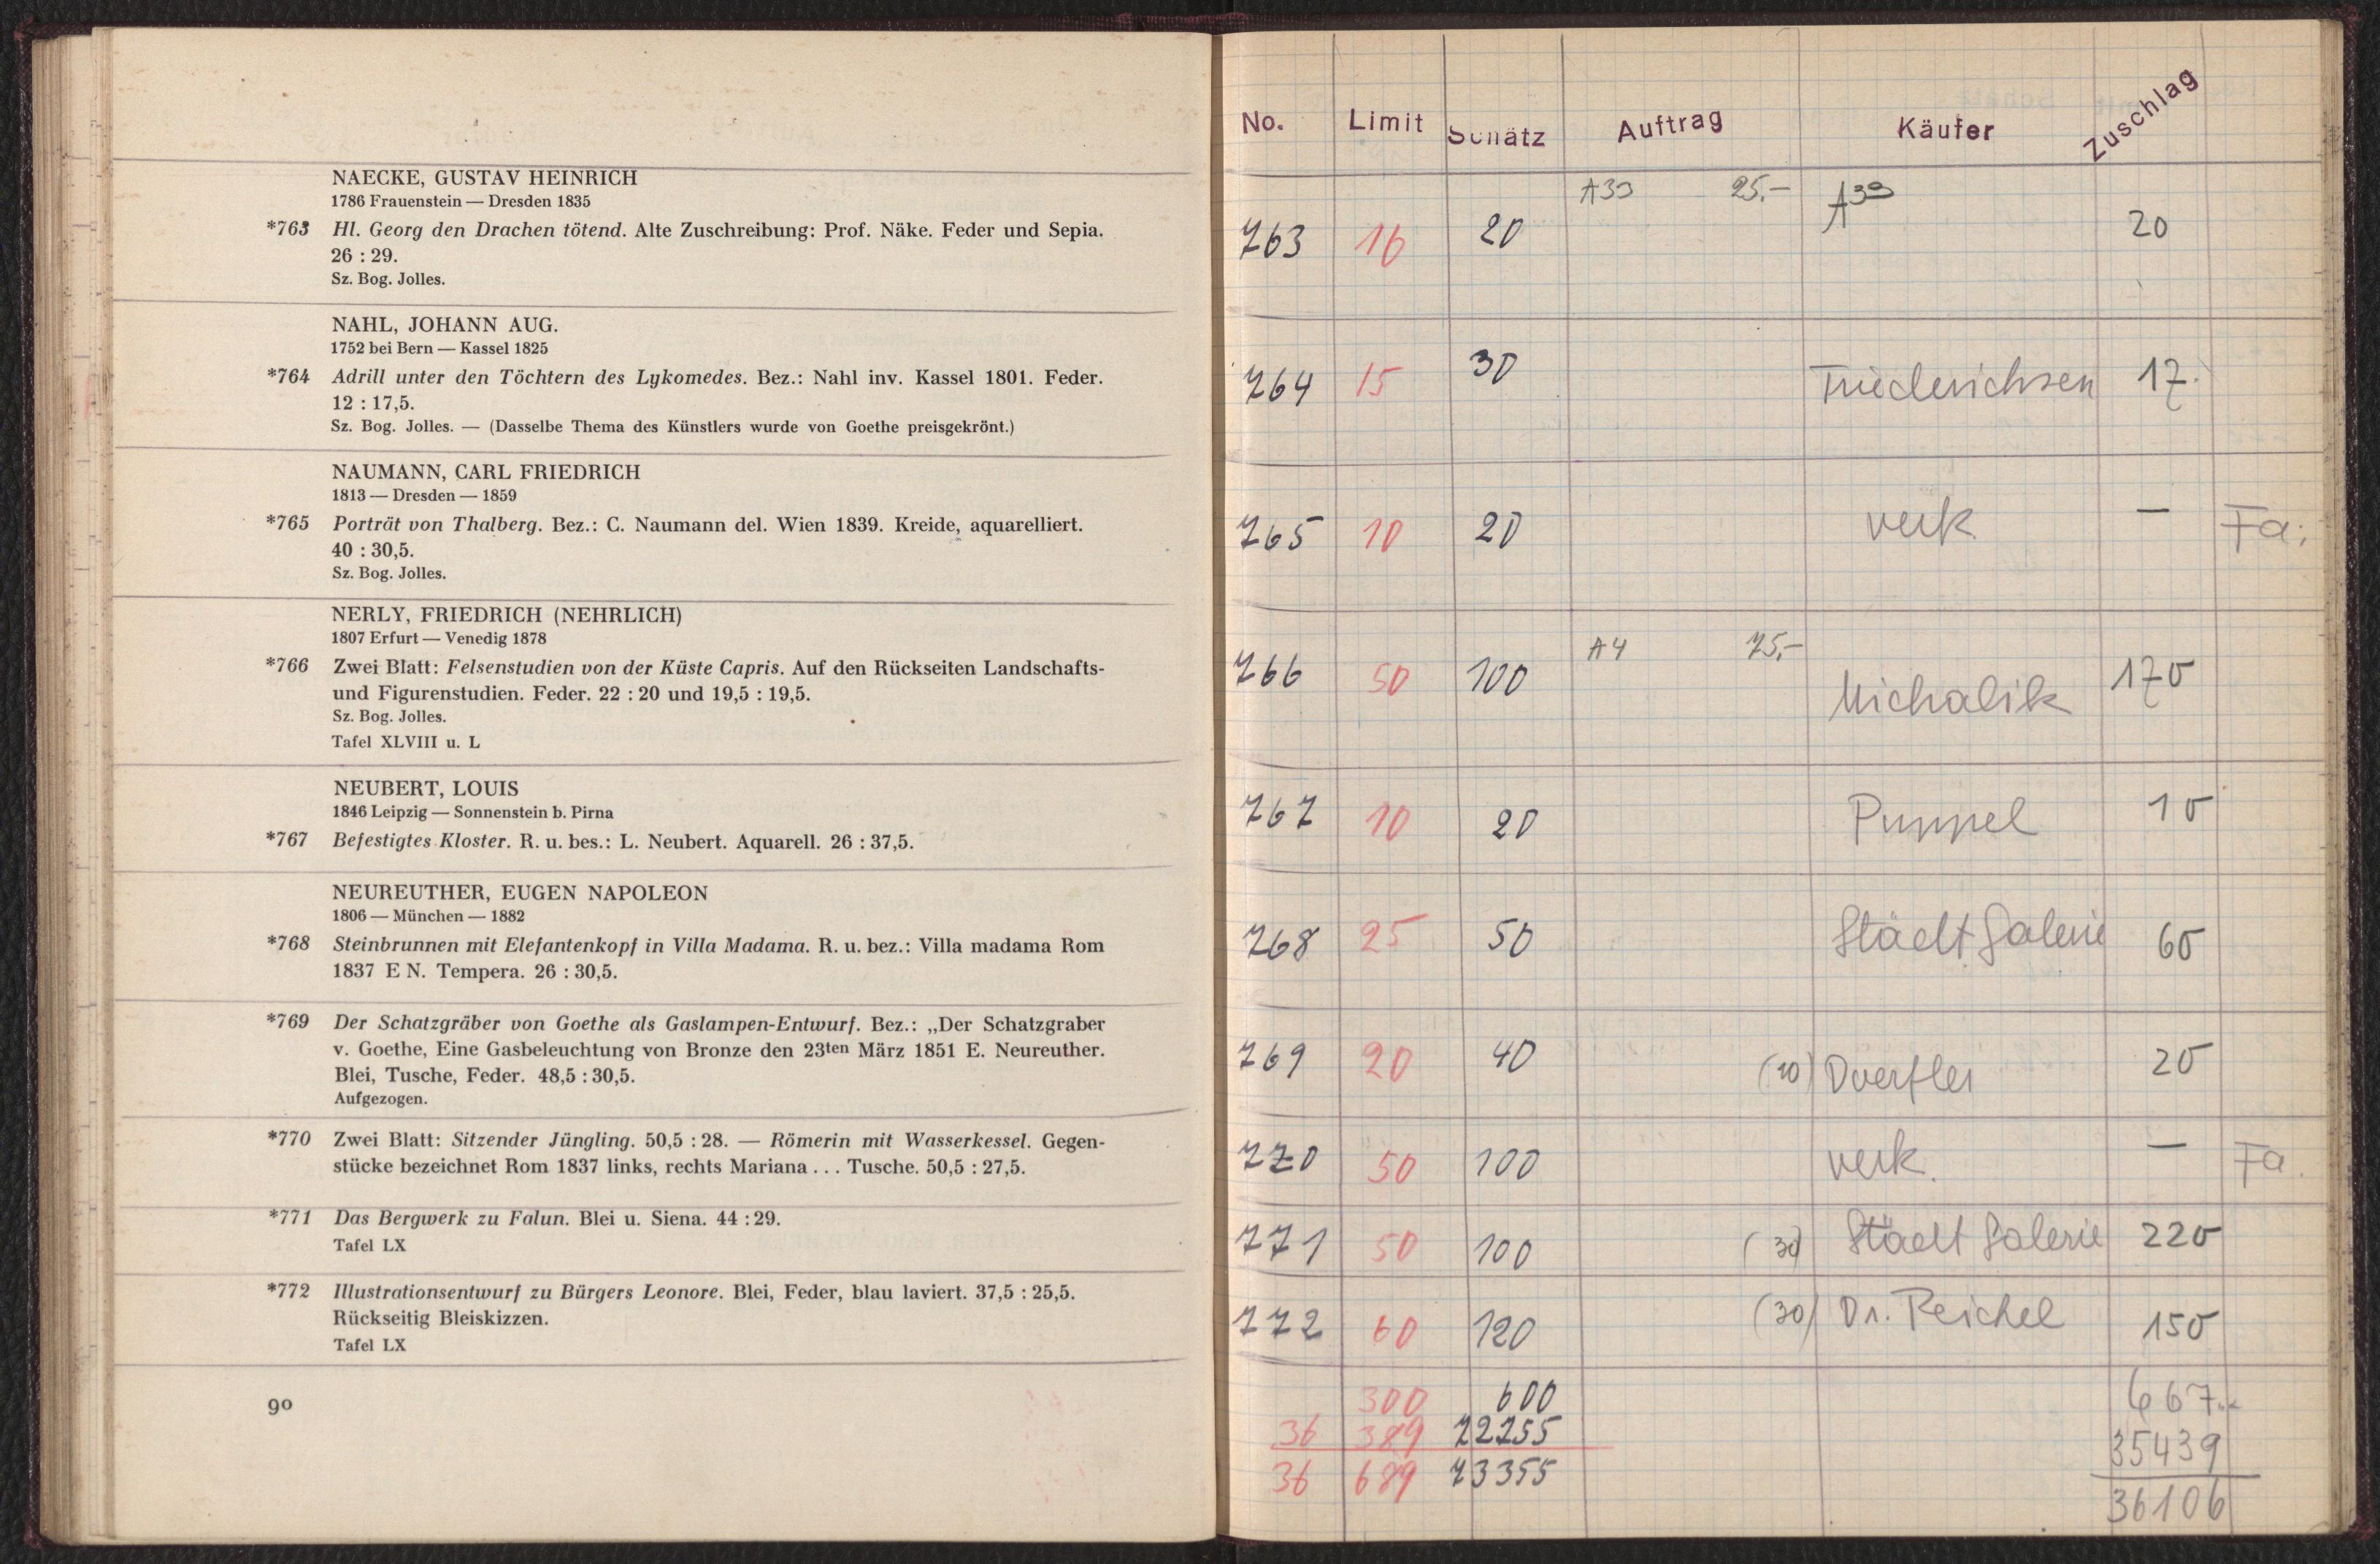 NAECKE, GUSTAV HEINRICH
1786 Frauenstein — Dresden 1835
*763 Hl. Georg den Drachen tötend. Alte Zuschreibung: Prof. Näke. Feder und Sepia.
26 : 29.
Sz. Bog. Jolles.
NAHL, JOHANN AUG.
1752 bei Bern — Kassel 1825
*764 Adrill unter den Töchtern des Lykomedes. Bez.: Nahl inv. Kassel 1801. Feder.
12 : 17,5.
Sz. Bog. Jolles. — (Dasselbe Thema des Künstlers wurde von Goethe preisgekrönt.)
NAUMANN, CARL FRIEDRICH
1813 — Dresden — 1859
*765 Porträt von Thalberg. Bez.: C. Naumann del. Wien 1839. Kreide, aquarelliert.
40 : 30,5.
Sz. Bog. Jolles.
NERLY, FRIEDRICH (NEHRLICH)
1807 Erfurt — Venedig 1878
*766 Zwei Blatt: Felsenstudien von der Küste Capris. Auf den Rückseiten Landschafts-
und Figurenstudien. Feder. 22 : 20 und 19,5 : 19,5.
Sz. Bog. Jolles.
Tafel XLVIII u. L
NEUBERT, LOUIS
1846 Leipzig — Sonnenstein b. Pirna
*767 Befestigtes Kloster. R. u. bes.: L. Neubert. Aquarell. 26 : 37,5.
NEUREUTHER, EUGEN NAPOLEON
1806 — München — 1882
*768 Steinbrunnen mit Elefantenkopf in Villa Madama. R. u. bez.: Villa madama Rom
1837 E N. Tempera. 26 : 30,5.
*769 Der Schatzgräber von Goethe als Gaslampen-Entwurf. Bez.: „Der Schatzgraber
v. Goethe, Eine Gasbeleuchtung von Bronze den 23ten März 1851 E. Neureuther.
Blei, Tusche, Feder. 48,5 : 30,5.
Aufgezogen.
*770 Zwei Blatt: Sitzender Jüngling. 50,5 : 28. — Römerin mit Wasserkessel. Gegen-
stücke bezeichnet Rom 1837 links, rechts Mariana . . . Tusche. 50,5 : 27,5.
*771 Das Bergwerk zu Falun. Blei u. Siena. 44 : 29.
Tafel LX
*772 Illustrationsentwurf zu Bürgers Leonore. Blei, Feder, blau laviert. 37,5 : 25,5.
Rückseitig Bleiskizzen.
Tafel LX
90
No. Limit Schätz Auftrag Käufer Zuschlag
A39 25.- A39
763 16 20 20
764 15 30 Friederichsen 17.
765 10 20 verk — Fa.
A4 75,-
766 50 100 Michalik 170
767 10 20 Puppel 10
768 25 50 Städt Galerie 60
769 20 40 (10) Doerfler 20
770 50 100 verk. — Fa.
771 50 100 (30) Städt Galerie 220
772 60 120 (30) Dr. Reichel 150
300 600 667.-
36 389 35439
36 689 73355 36106